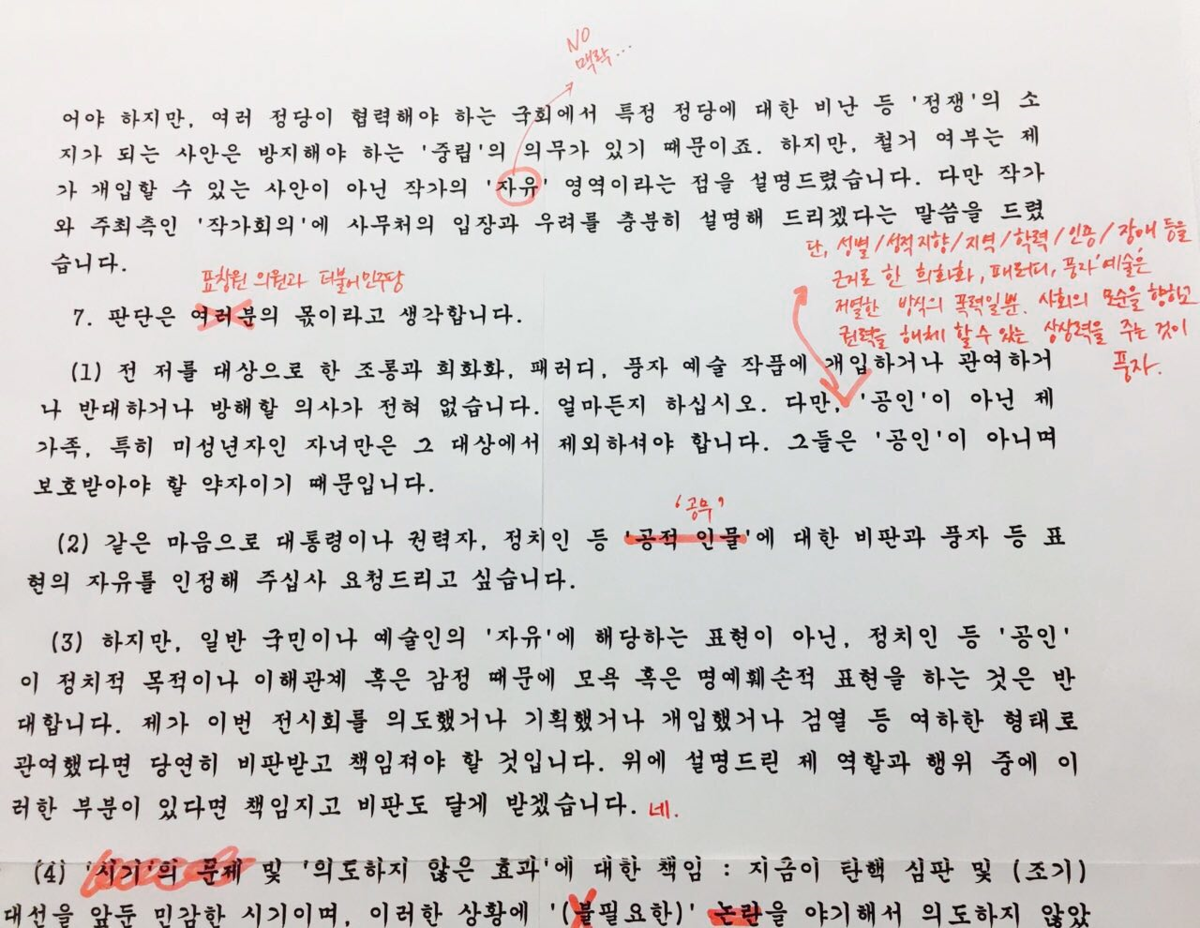 NO
맥락...
어야 하지만, 여러 정당이 협력해야 하는 국회에서 특정 정당에 대한 비난 등 '정쟁'의 소
지가 되는 사안은 방지해야 하는 '중립'의 의무가 있기 때문이죠. 하지만, 철거 여부는 제
가 개입할 수 있는 사안이 아닌 작가의 '자유' 영역이라는 점을 설명드렸습니다. 다만 작가
와 주최측인 '작가회의'에 사무처의 입장과 우려를 충분히 설명해 드리겠다는 말씀을 드렸
습니다.
단, 성별/성적지향/지역/학력/인종/장애 등을
근거로 한 희화화, 패러디, 풍자'예술'은
저열한 방식의 폭력일뿐. 사회의 모순을 향하고
권력을 해체 할 수 있는 상상력을 주는 것이
풍자.
표창원 의원과 더불어민주당
7. 판단은 여러분의 몫이라고 생각합니다.
(1) 전 저를 대상으로 한 조롱과 희화화, 패러디, 풍자 예술 작품에 개입하거나 관여하거
나 반대하거나 방해할 의사가 전혀 없습니다. 얼마든지 하십시오. 다만, '공인'이 아닌 제
가족, 특히 미성년자인 자녀만은 그 대상에서 제외하셔야 합니다. 그들은 '공인'이 아니며
보호받아야 할 약자이기 때문입니다.
'공무'
(2) 같은 마음으로 대통령이나 권력자, 정치인 등 '공적 인물'에 대한 비판과 풍자 등 표
현의 자유를 인정해 주십사 요청드리고 싶습니다.
(3) 하지만, 일반 국민이나 예술인의 '자유'에 해당하는 표현이 아닌, 정치인 등 '공인'
이 정치적 목적이나 이해관계 혹은 감정 때문에 모욕 혹은 명예훼손적 표현을 하는 것은 반
대합니다. 제가 이번 전시회를 의도했거나 기획했거나 개입했거나 검열 등 여하한 형태로
관여했다면 당연히 비판받고 책임져야 할 것입니다. 위에 설명드린 제 역할과 행위 중에 이
러한 부분이 있다면 책임지고 비판도 달게 받겠습니다. 네.
(4) '시기'의 문제 및 '의도하지 않은 효과'에 대한 책임 : 지금이 탄핵 심판 및 (조기)
대선을 앞둔 민감한 시기이며, 이러한 상황에 '(불필요한)' 논란을 야기해서 의도하지 않았